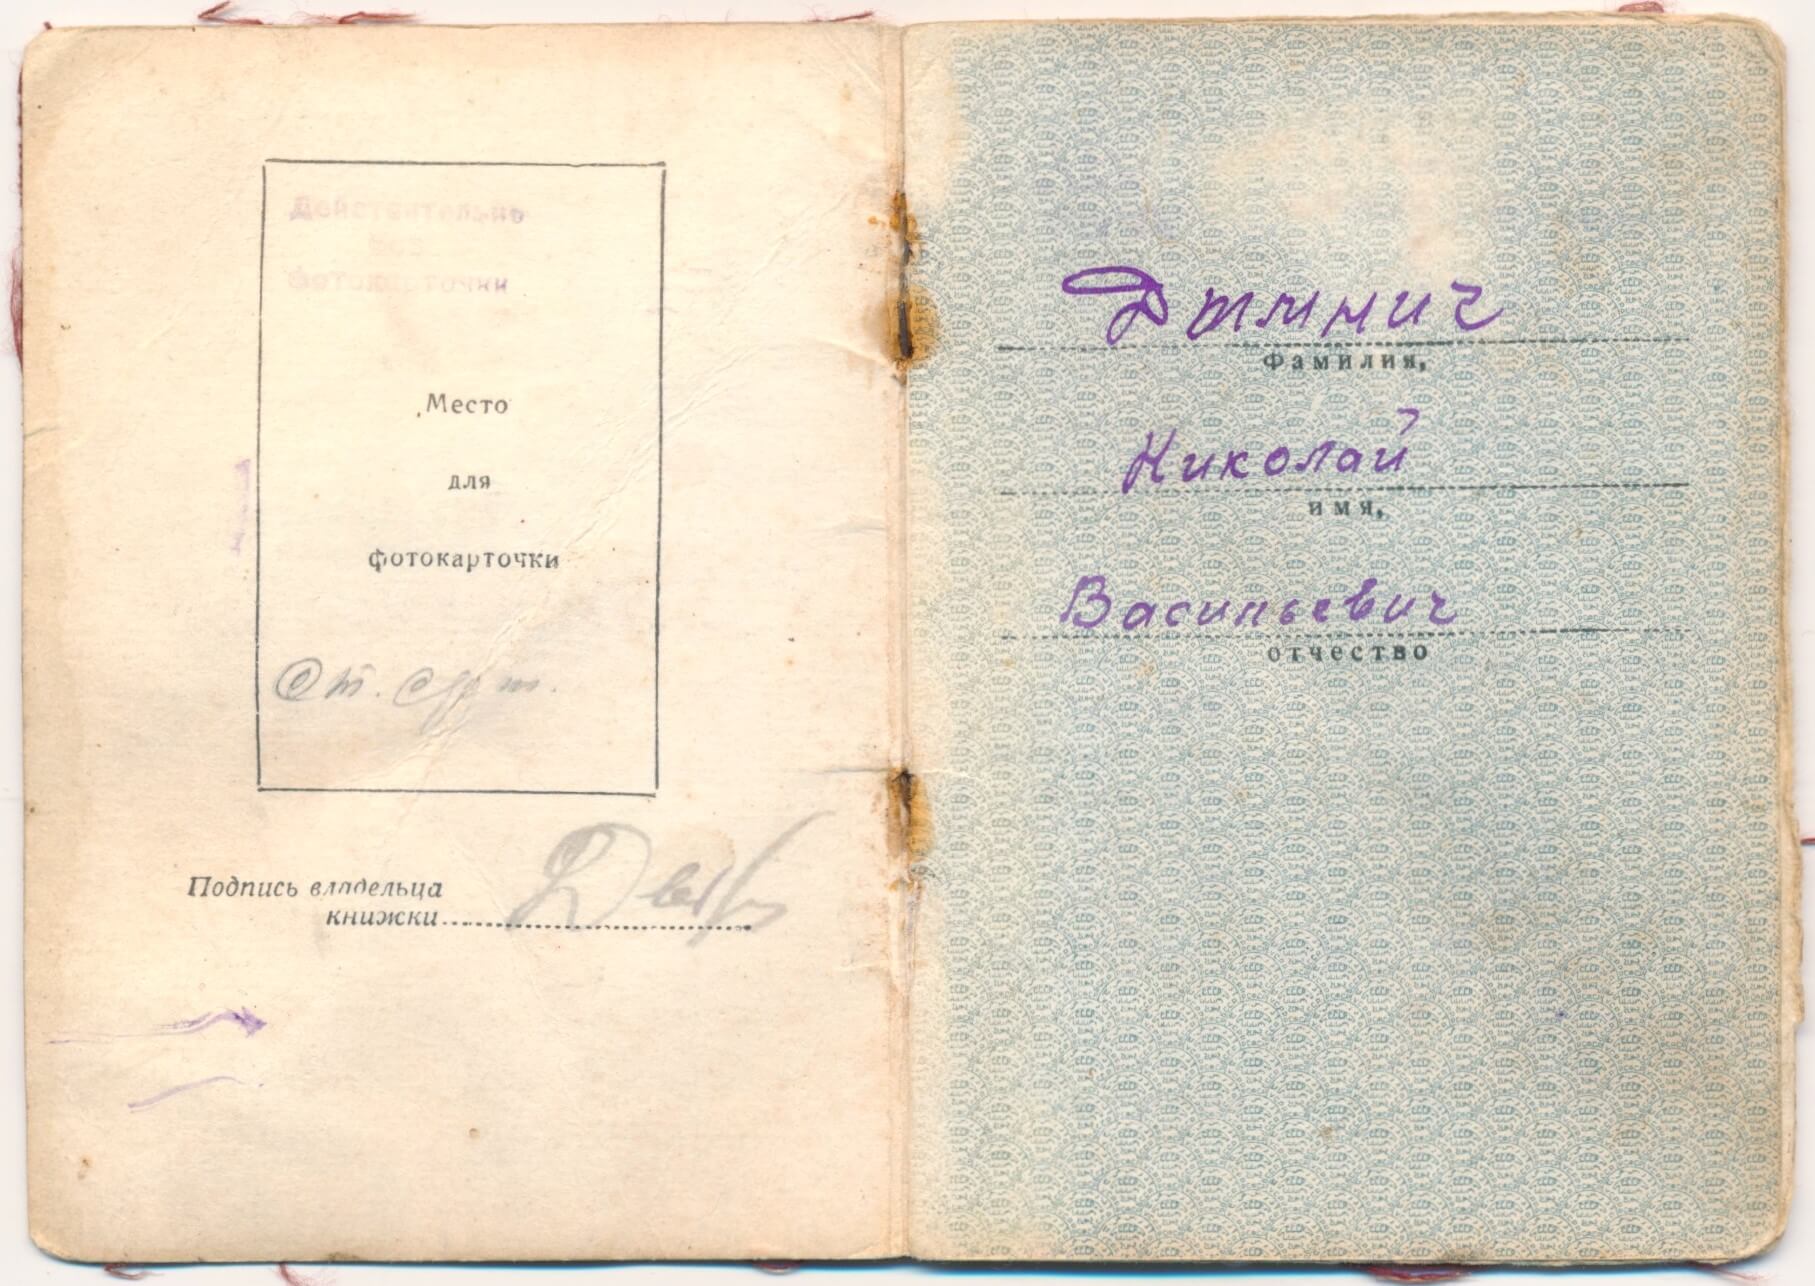 Действительно
без
фотокарточки
Место
для
фотокарточки
Ст. серж.
Подпись владельца
книжки
Дымнич
фамилия,
Николай
имя,
Васильевич
отчество